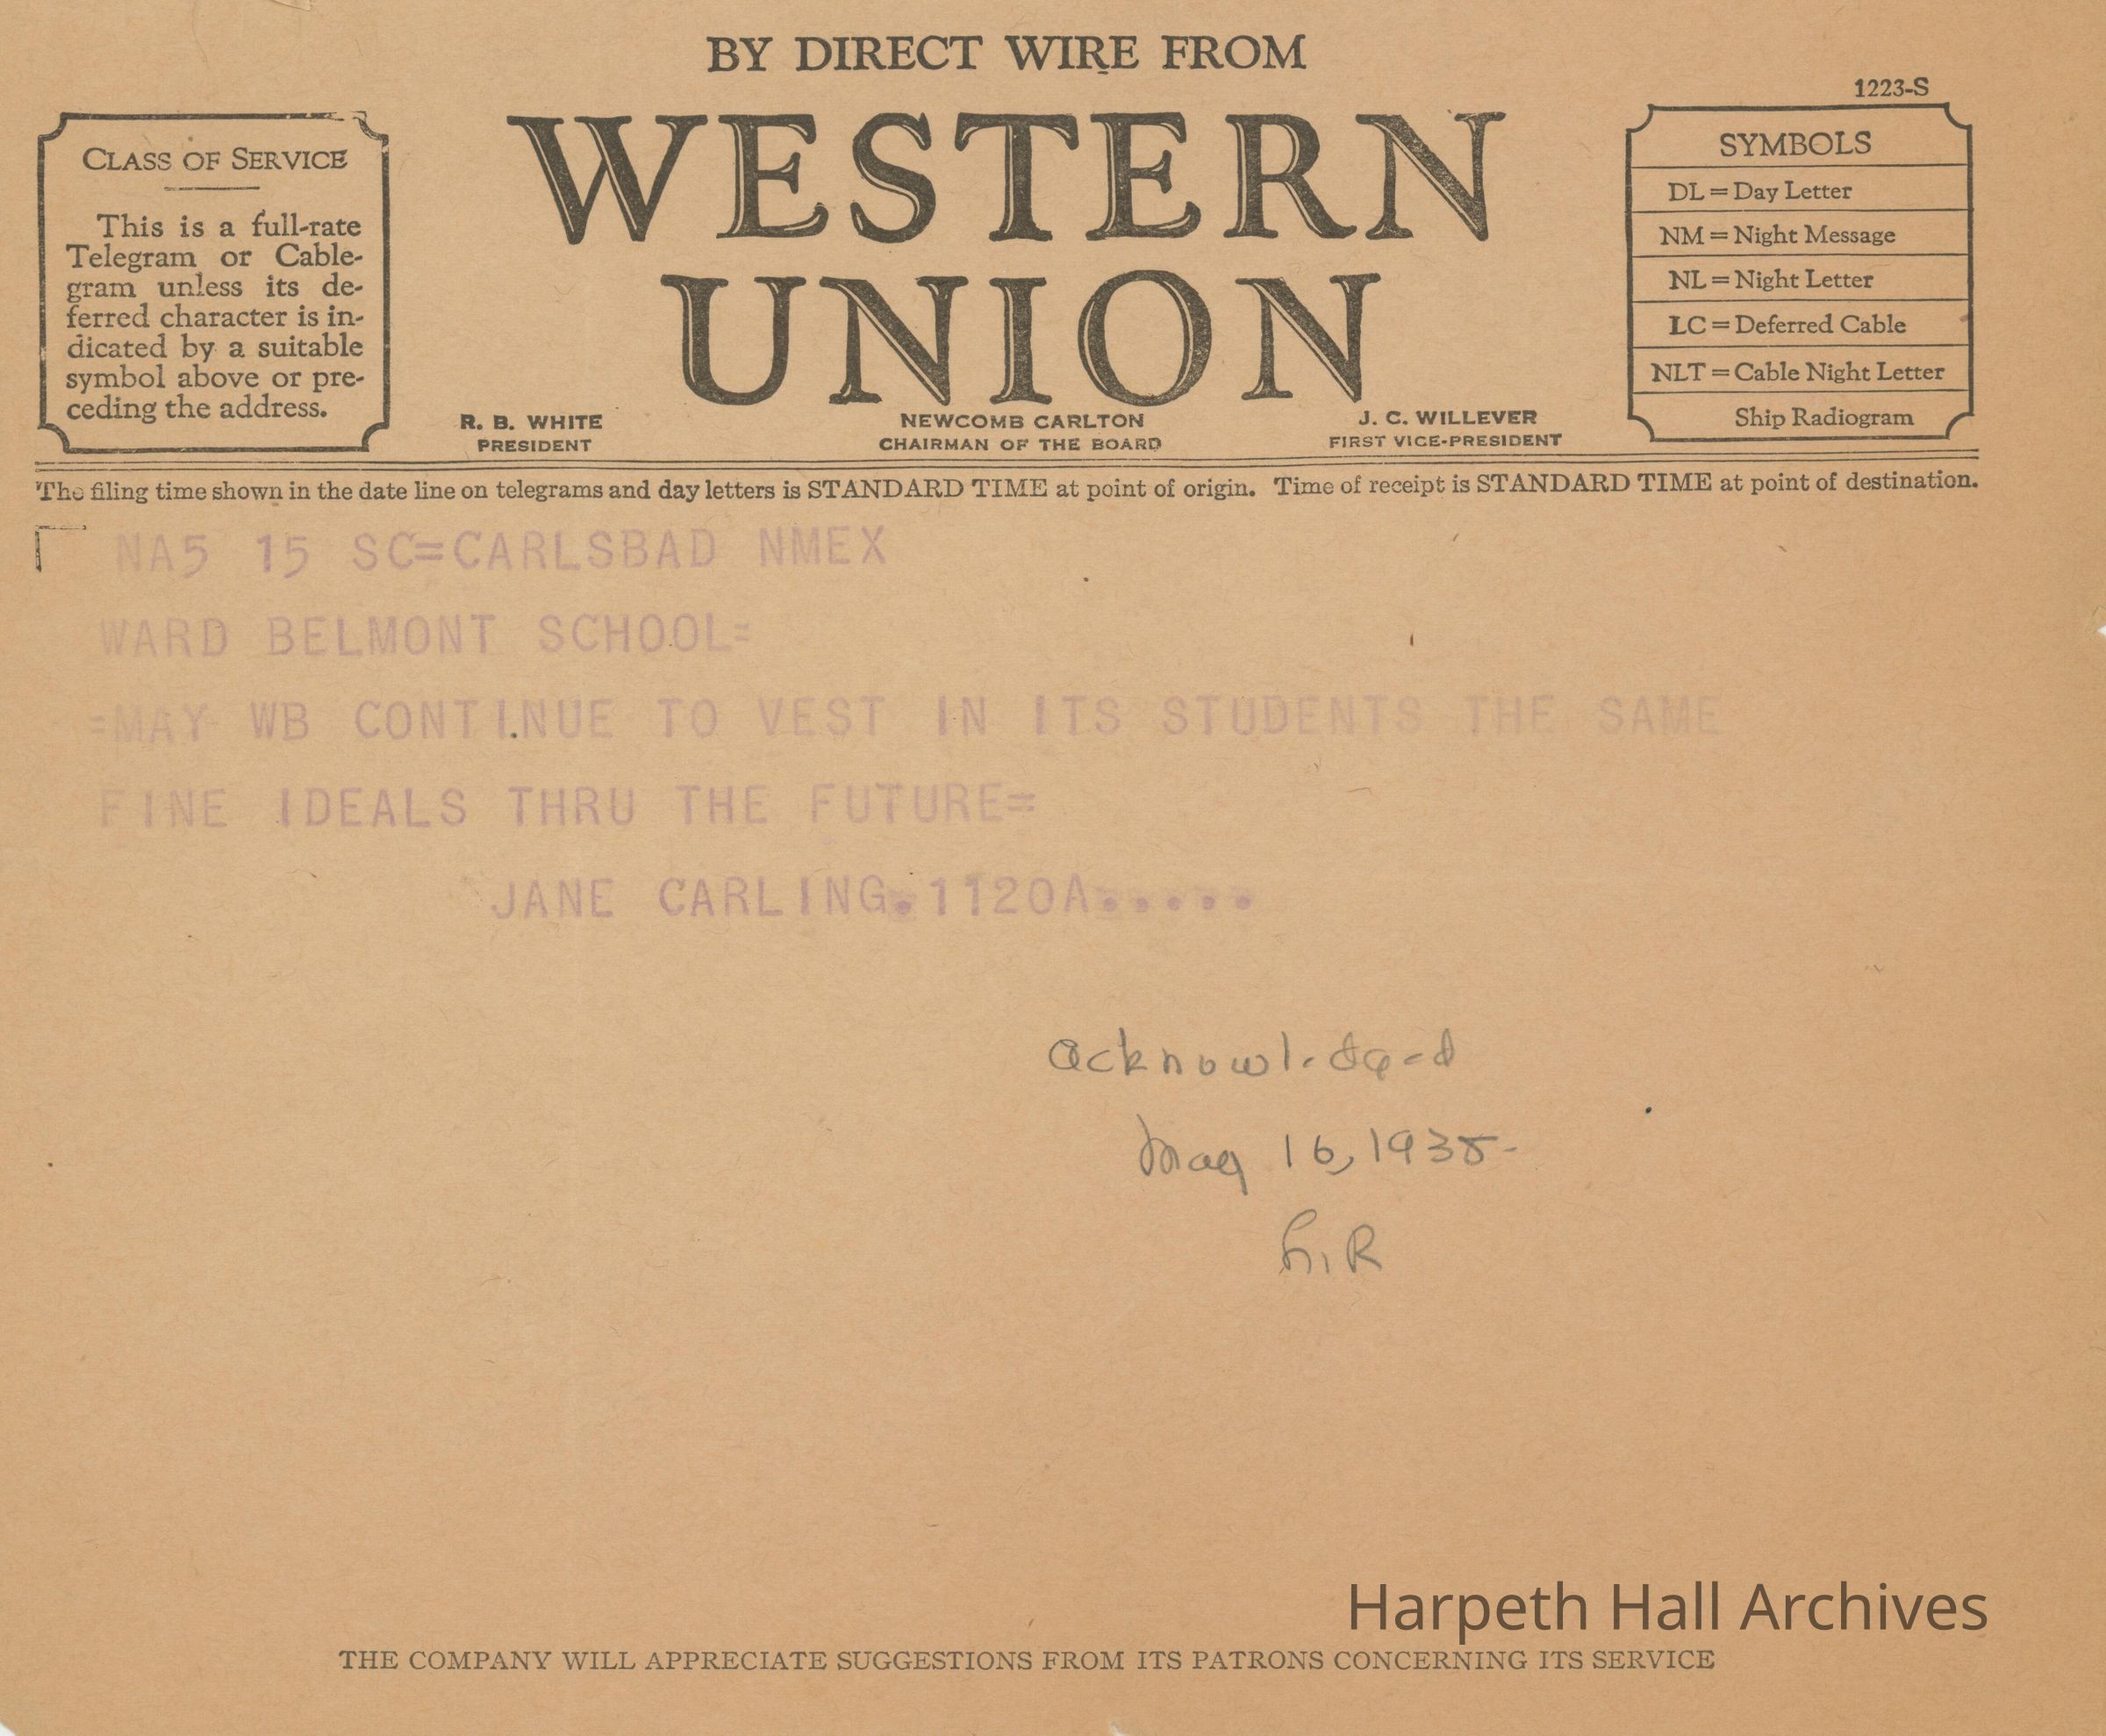 BY DIRECT WIRE FROM
WESTERN
UNION
1223-S
CLASS OF SERVICE
This is a full-rate
Telegram or Cable-
gram unless its de-
ferred character is in-
dicated by a suitable
symbol above or pre-
ceding the address.
R. B. WHITE
PRESIDENT
NEWCOMB CARLTON
CHAIRMAN OF THE BOARD
J. C. WILLEVER
FIRST VICE-PRESIDENT
SYMBOLS
DL = Day Letter
NM = Night Message
NL = Night Letter
LC = Deferred Cable
NLT = Cable Night Letter
Ship Radiogram
The filing time shown in the date line on telegrams and day letters is STANDARD TIME at point of origin. Time of receipt is STANDARD TIME at point of destination.
NA5 15 SC=CARLSBAD NMEX
WARD BELMONT SCHOOL=
=MAY WB CONTINUE TO VEST IN ITS STUDENTS THE SAME
FINE IDEALS THRU THE FUTURE=
JANE CARLING.1120A.....
acknowledged
May 16,
Harpeth Hall Archives
THE COMPANY WILL APPRECIATE SUGGESTIONS FROM ITS PATRONS CONCERNING ITS SERVICE